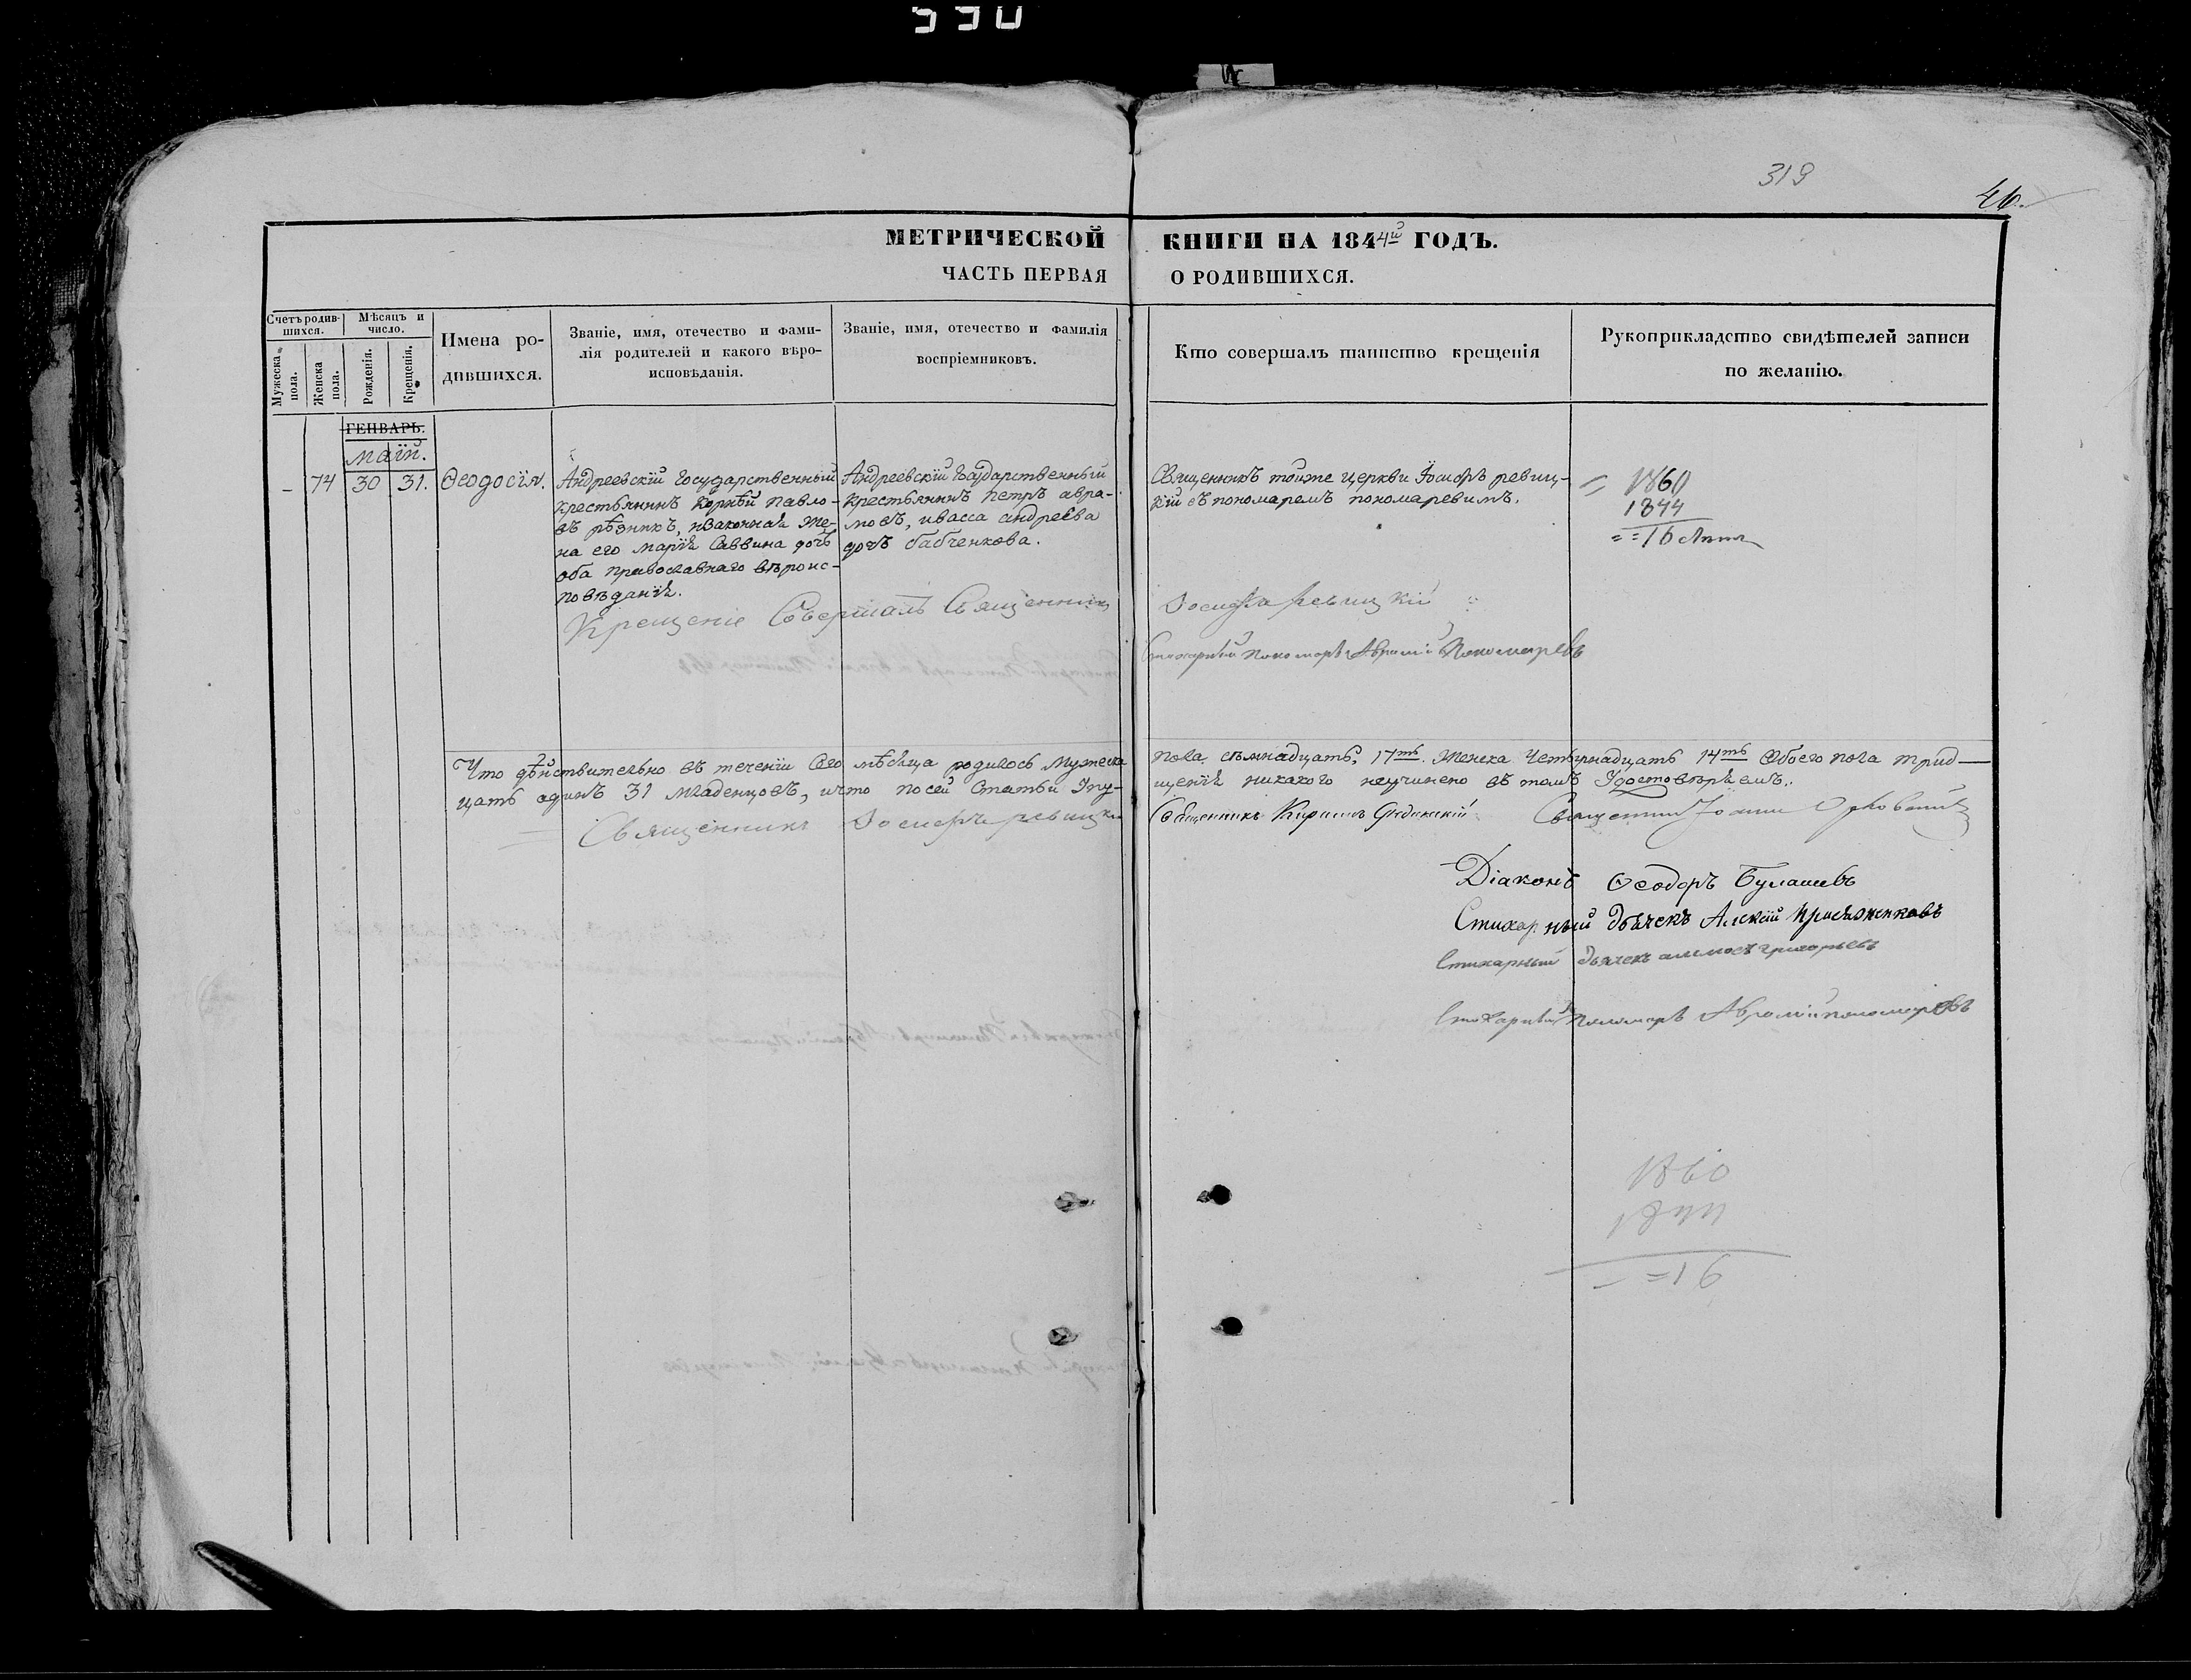 530
319
46.
МЕТРИЧЕСКОЙ КНИГИ НА 1844й ГОДЪ.
ЧАСТЬ ПЕРВАЯ О РОДИВШИХСЯ.
Счетъ родив-
шихся.
Мѣсяцъ и
число.
Мужеска
пола.
Женска
пола.
Рожденія.
Крещенія.
Имена ро-
дившихся.
Званіе, имя, отечество и фами-
лія родителей и какого вѣро-
исповѣданія.
Званіе, имя, отечество и фамилія
воспріемниковъ.
Кто совершалъ таинство крещенія
Рукоприкладство свидѣтелей записи
по желанію.
ГЕНВАРЬ.
маій.
- 74 30 31. Ѳеодосія.
Андреевскій государственный
крестьянинъ Корнѣй Павло-
въ рѣзникъ, изаконная же-
на его марія Саввина дочь
оба православнаго вѣроис-
повѣданія.
Андреевскій государственный
крестьянинъ петръ авра-
мовъ, ивасса андреева
дочь бабченкова.
Священникъ тойже церкви Іосифъ ревиц-
кій съ пономаремъ пономаревимъ.
= 1860
1844
= = 16 лѣтъ
Крещеніе Совершалъ Священникъ Іосифъ Ревицкій
Стихарный пономарь Аврамій Пономаревъ
Что дѣйствительно въ теченіи Сего мѣсяца родилось Мужеска пола семнадцать, 17ть. Женска Четырнадцать 14ть Обоего пола трид-
цать одинъ 31 младенцовъ, ичто посей Статьи Упу- щенія никакого неучинено въ томъ Удостовѣряемъ.
Священникъ Іосифъ ревицкій Священникъ Кириллъ Священникъ Іоаннъ
Діаконъ Ѳеодоръ Булашевъ
Стихарный дьячекъ Алексій Присяженковъ
Стихарный дьячекъ григорьевъ
Стихарный Пономарь Аврамій пономаревъ
1860
1844
- = 16